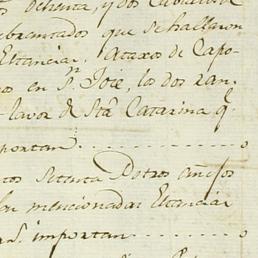 ochenta, y dos Caballos
quebrantados que se hallaron
Estancias, Atajos de Capo-
en Sn. Jose, los dos ran-
-lavor de Sta. Catarina q.
importan
setenta Potros añejos
las mencionadas Estancias
importan